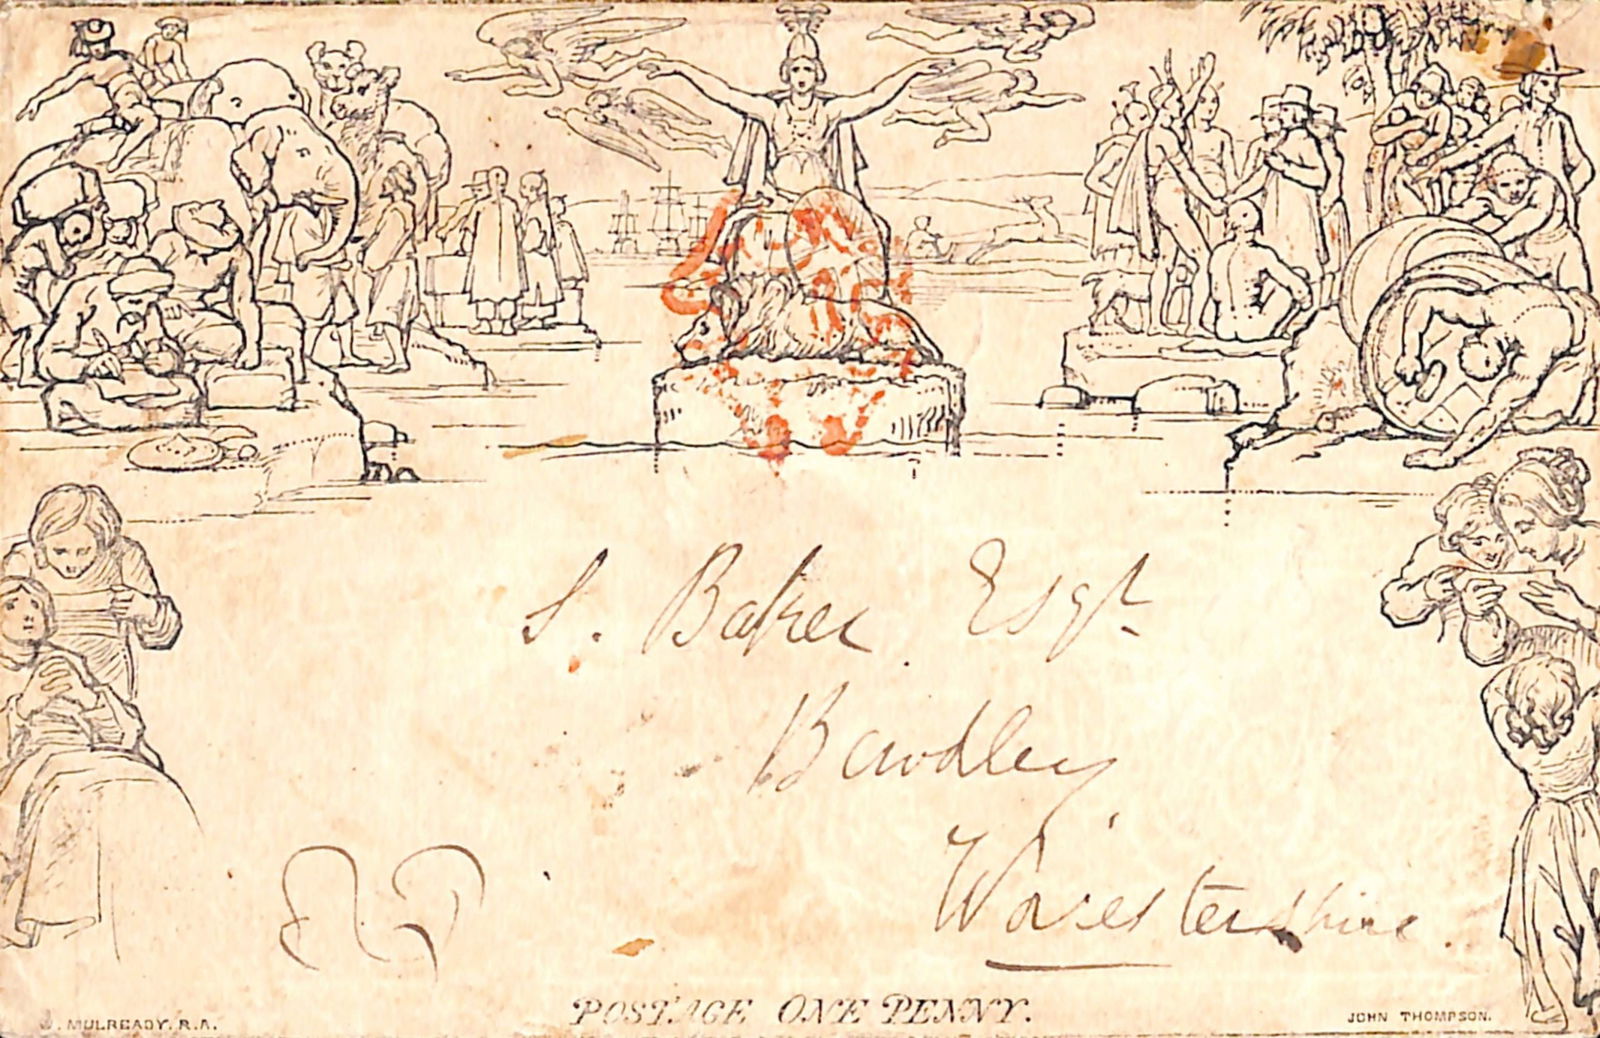 S. Baker Esqr.
Bewdley
Worcestershire.
POSTAGE ONE PENNY.
W. MULREADY. R.A.
JOHN THOMPSON.